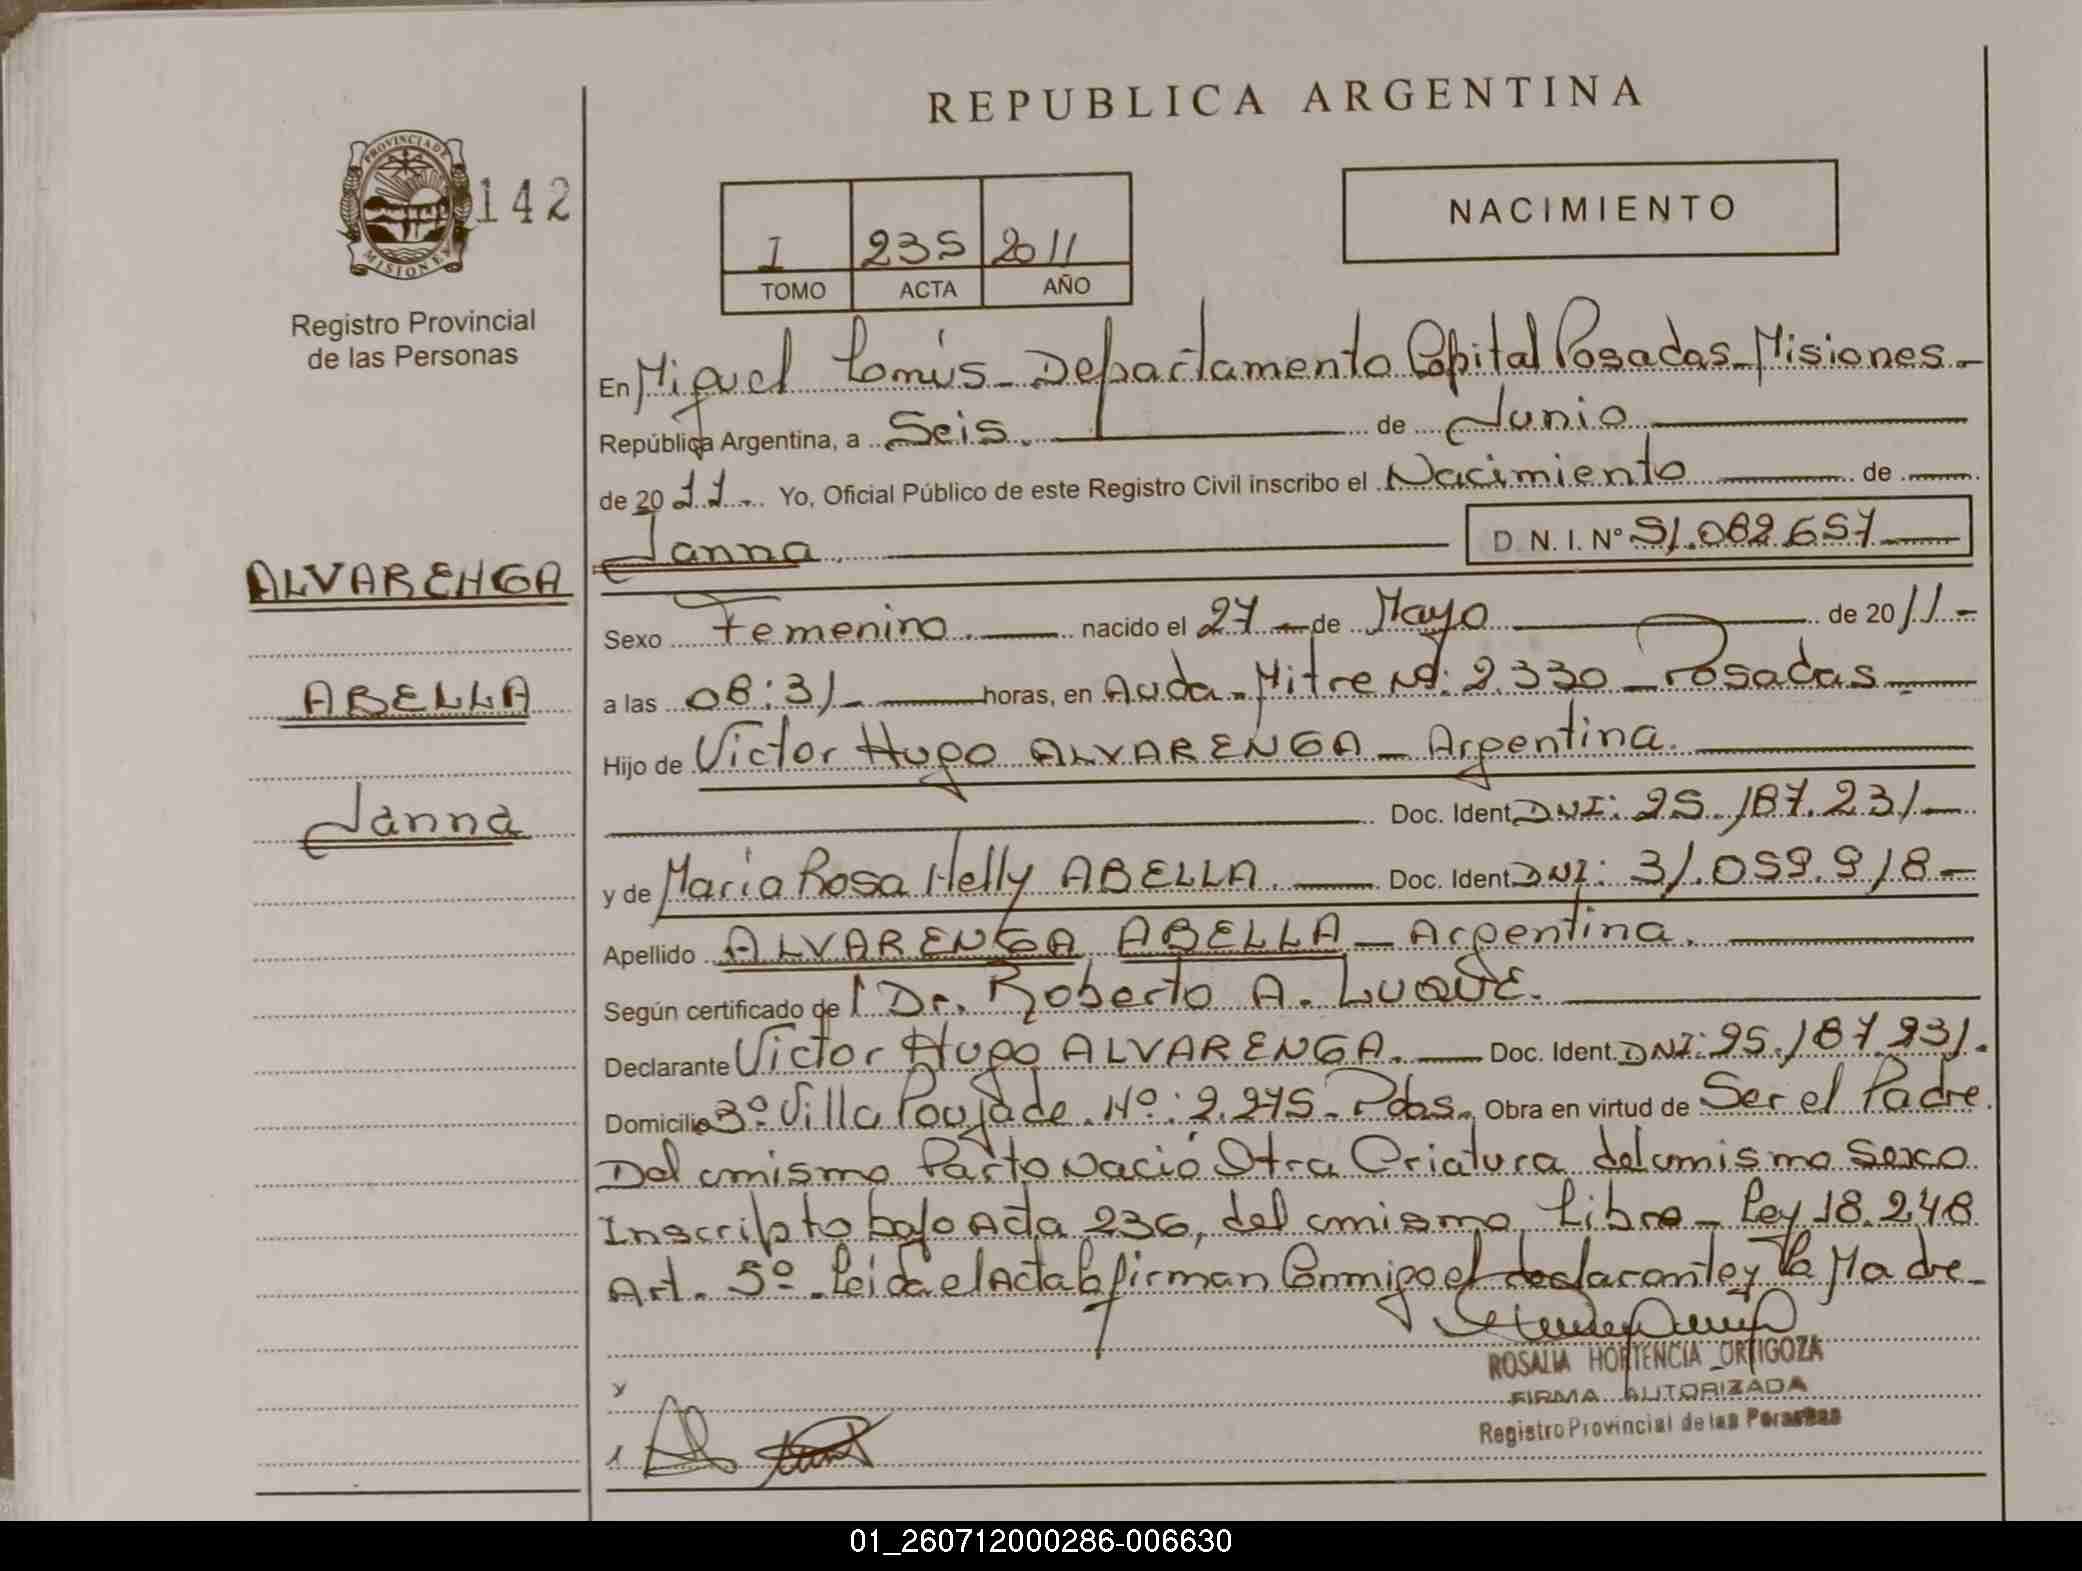 REPUBLICA ARGENTINA
PROVINCIA DE
MISIONES
142
Registro Provincial
de las Personas
I 235 2011
TOMO ACTA AÑO
NACIMIENTO
En Miguel Lanús - Departamento Capital Posadas - Misiones -
República Argentina, a Seis. de Junio
de 2011 - Yo, Oficial Público de este Registro Civil inscribo el Nacimiento de
Janna D. N. I. N° 51.082.657
ALVARENGA
ABELLA
Janna
Sexo Femenino. nacido el 27 de Mayo de 2011 -
a las 08:31 - horas, en Avda - Mitre Nº: 2.330 - Posadas
Hijo de Victor Hugo ALVARENGA - Argentina.
Doc. Ident DNI: 25.187.231 -
y de María Rosa Nelly ABELLA. Doc. Ident DNI: 31.059.918 -
Apellido ALVARENGA ABELLA - Argentina.
Según certificado de l Dr. Roberto A. LUQUE.
Declarante Victor Hugo ALVARENGA. Doc. Ident. DNI: 25.187.231.
Domicilio 3º Villa Poujade. Nº: 2.275 - Pdas. Obra en virtud de Ser el Padre.
Del mismo Parto Nació Otra Criatura del mismo Sexo
Inscripto bajo Acta 236, del mismo Libro - Ley 18.248
Art. 5º - Leida el Acta la firman Conmigo el declarante y la Madre -
ROSALIA HORTENCIA ORTIGOZA
FIRMA AUTORIZADA
Registro Provincial de las Personas
01_260712000286-006630